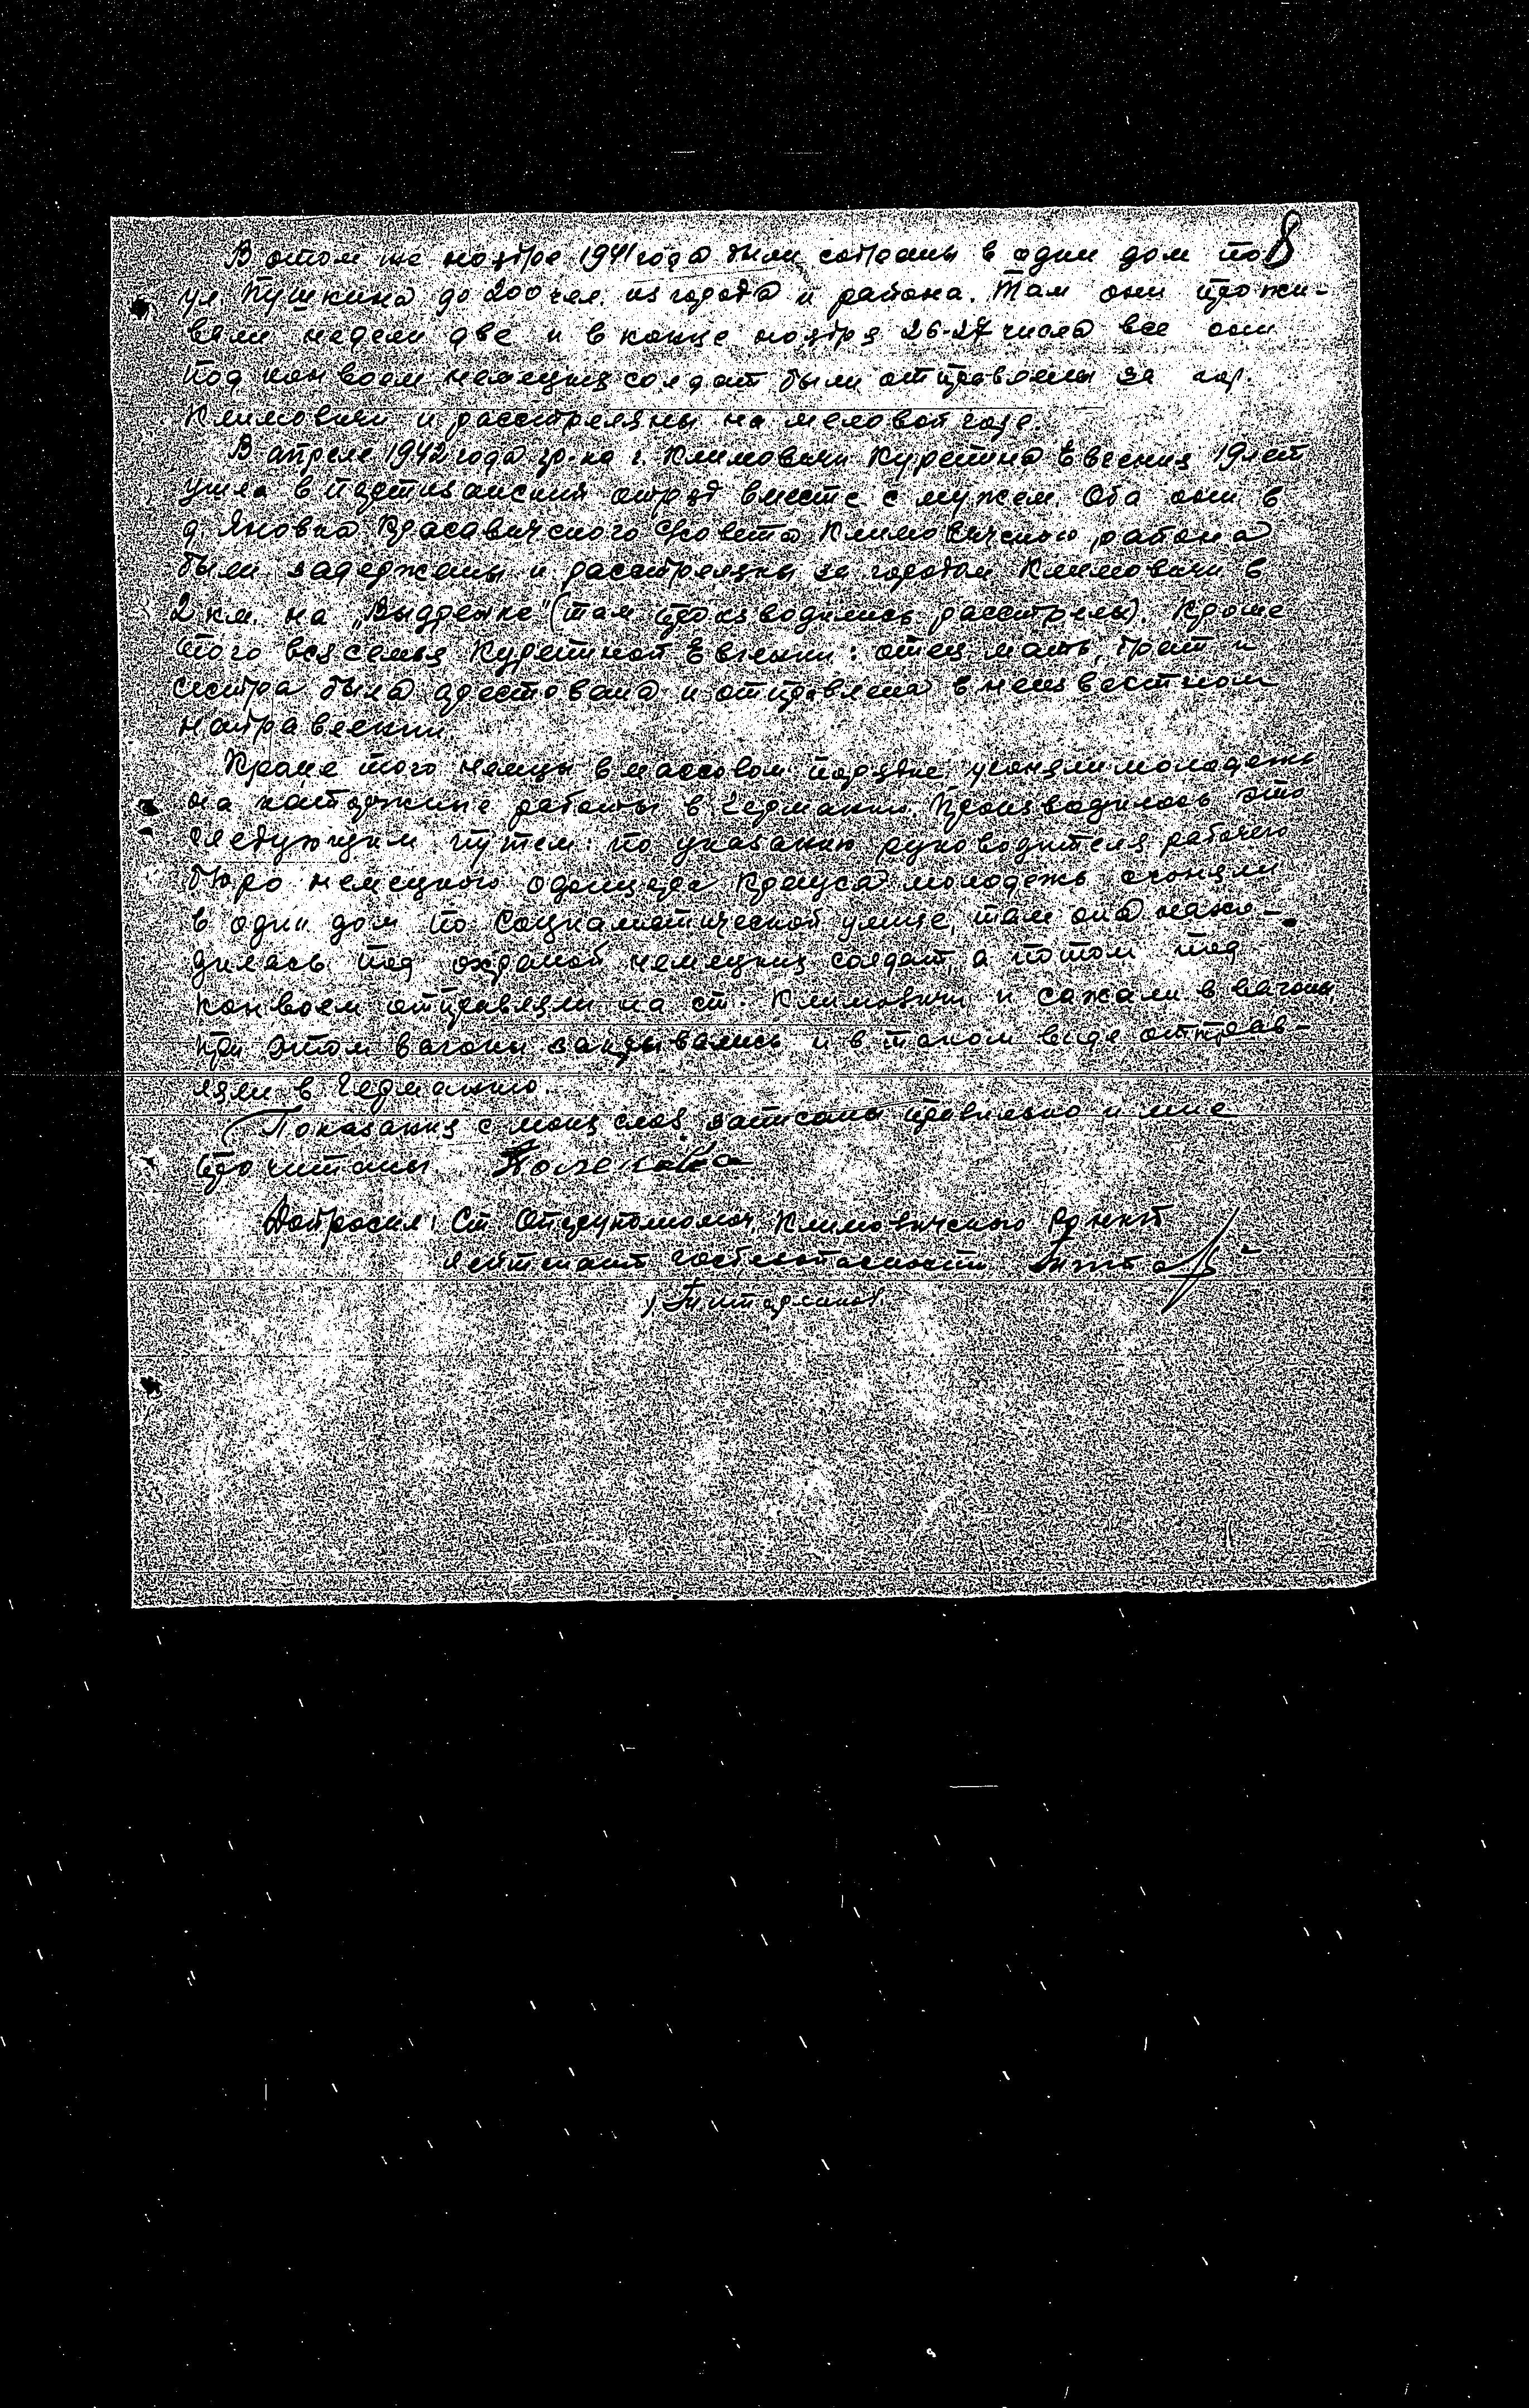 8
В этом же ноябре 1941 года были собраны в один дом по
ул Пушкина до 200 чел. из города и района. Там они прожи-
вали недели две и в конце ноября 26-27 числа все они
под конвоем немецких солдат были отправлены за гор.
Климовичи и расстреляны на меловой горе.
В апреле 1942 года гр-ка г. Климовичи Евгения 19 лет
ушла в партизанский отряд вместе с мужем. Оба они в
д. Яновка Красавичского с/совета Климовичского района
были задержаны и расстреляны за городом Климовичи в
2 км. на „Выдренке" (там производились расстрелы). Кроме
этого вся семья Евгении: отец, мать, брат и
сестра была арестована и отправлена в неизвестном
направлении.
Кроме того немцы в массовом порядке угоняли молодежь
на каторжные работы в Германию. Производилось это
следующим путем: по указанию руководителя рабочего
бюро немецкого Крауса молодежь сгоняли
в один дом по Социалистической улице, там она нахо-
дилась под охраной немецких солдат, а потом под
конвоем отправляли на ст. Климовичи и сажали в вагоны,
при этом вагоны закрывались и в таком виде отправ-
ляли в Германию.
Показания с моих слов записаны правильно и мне
прочитаны
Допросил: Ст. Оперуполномоч. Климовичского
Лейтенант госбезопасности